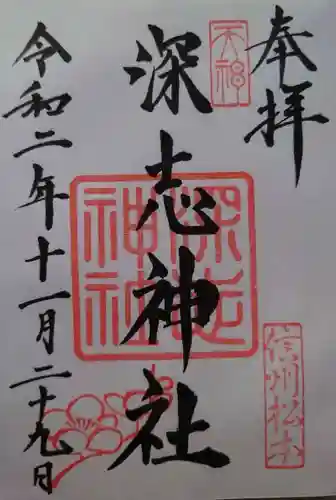 奉拝
天神
深志神社
深志神社
信州松本
令和二年十一月二十九日